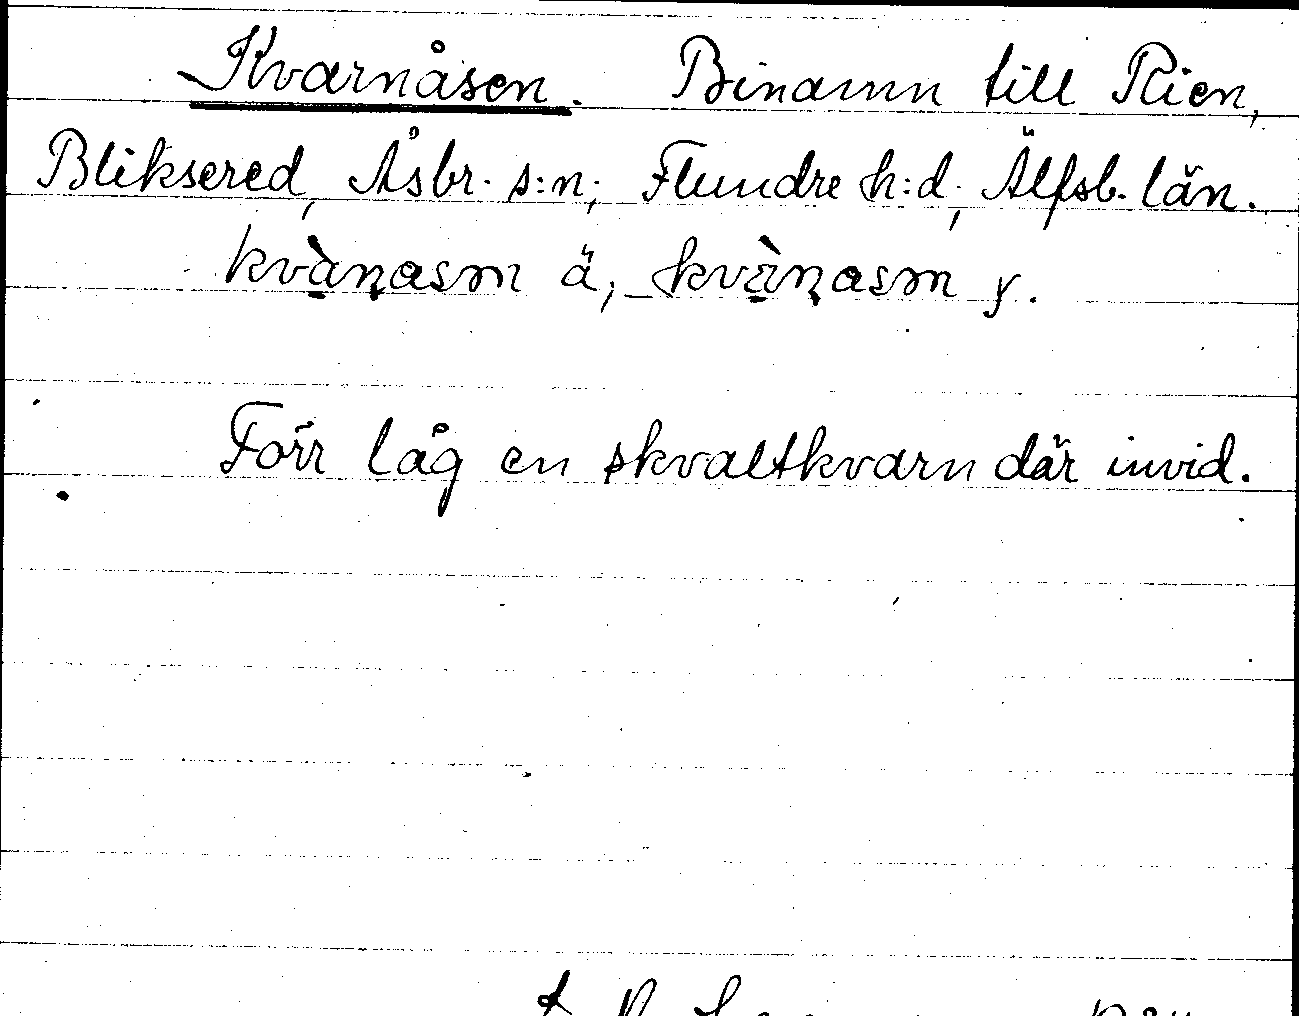 Kvarnåsen. Binamn till Rien,
Bliksered, Åsbr. s:n; Flundre h:d, Älfsb. län.
kvànasm ä, kvànasm y.
Förr låg en skvaltkvarn där invid.